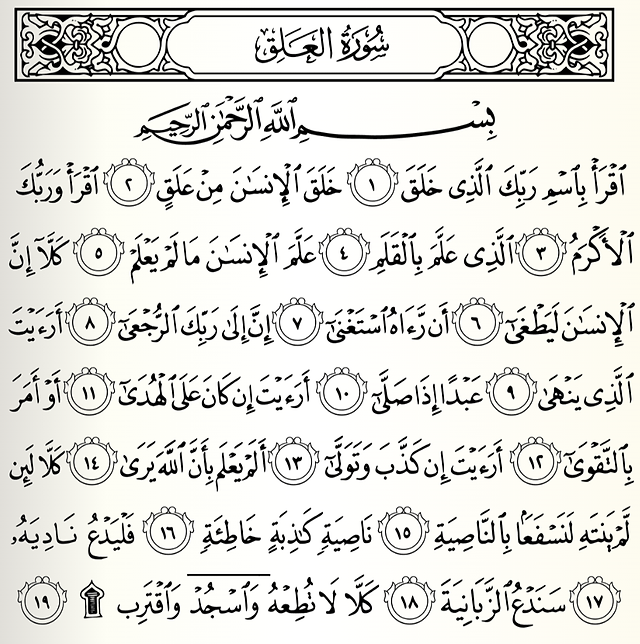 سُورَةُ الْعَلَقِ
بِسْمِ ٱللَّهِ ٱلرَّحْمَٰنِ ٱلرَّحِيمِ
ٱقْرَأْ بِٱسْمِ رَبِّكَ ٱلَّذِى خَلَقَ ١ خَلَقَ ٱلْإِنسَٰنَ مِنْ عَلَقٍ ٢ ٱقْرَأْ وَرَبُّكَ
ٱلْأَكْرَمُ ٣ ٱلَّذِى عَلَّمَ بِٱلْقَلَمِ ٤ عَلَّمَ ٱلْإِنسَٰنَ مَا لَمْ يَعْلَمْ ٥ كَلَّآ إِنَّ
ٱلْإِنسَٰنَ لَيَطْغَىٰٓ ٦ أَن رَّءَاهُ ٱسْتَغْنَىٰٓ ٧ إِنَّ إِلَىٰ رَبِّكَ ٱلرُّجْعَىٰٓ ٨ أَرَءَيْتَ
ٱلَّذِى يَنْهَىٰ ٩ عَبْدًا إِذَا صَلَّىٰٓ ١٠ أَرَءَيْتَ إِن كَانَ عَلَى ٱلْهُدَىٰٓ ١١ أَوْ أَمَرَ
بِٱلتَّقْوَىٰٓ ١٢ أَرَءَيْتَ إِن كَذَّبَ وَتَوَلَّىٰٓ ١٣ أَلَمْ يَعْلَم بِأَنَّ ٱللَّهَ يَرَىٰ ١٤ كَلَّا لَئِن
لَّمْ يَنتَهِ لَنَسْفَعًۢا بِٱلنَّاصِيَةِ ١٥ نَاصِيَةٍ كَٰذِبَةٍ خَاطِئَةٍ ١٦ فَلْيَدْعُ نَادِيَهُۥ
١٧ سَنَدْعُ ٱلزَّبَانِيَةَ ١٨ كَلَّا لَا تُطِعْهُ وَٱسْجُدْ وَٱقْتَرِب ۩ ١٩